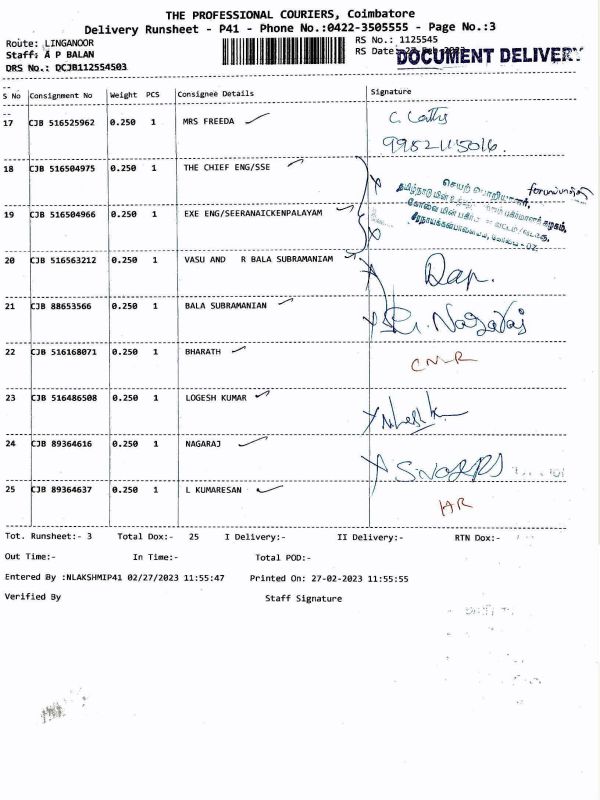 THE PROFESSIONAL COURIERS, Coimbatore
Delivery Runsheet - P41 - Phone No.:0422-3505555 - Page No.:3
Route: LINGANOOR RS No.: 1125545
Staff: A P BALAN RS Date: 27-Feb-2023 DOCUMENT DELIVERY
DRS No.: DCJB112554503
S No Consignment No Weight PCS Consignee Details Signature
17 CJB 516525962 0.250 1 MRS FREEDA
18 CJB 516504975 0.250 1 THE CHIEF ENG/SSE
செயற் பொறியாளர்,
19 CJB 516504966 0.250 1 EXE ENG/SEERANAICKENPALAYAM
20 CJB 516563212 0.250 1 VASU AND R BALA SUBRAMANIAM
21 CJB 88653566 0.250 1 BALA SUBRAMANIAN
Nagaraj
22 CJB 516168071 0.250 1 BHARATH
CMR
23 CJB 516486508 0.250 1 LOGESH KUMAR
24 CJB 89364616 0.250 1 NAGARAJ
25 CJB 89364637 0.250 1 L KUMARESAN
HR
Tot. Runsheet:- 3 Total Dox:- 25 I Delivery:- II Delivery:- RTN Dox:-
Out Time:- In Time:- Total POD:-
Entered By :NLAKSHMIP41 02/27/2023 11:55:47 Printed On: 27-02-2023 11:55:55
Verified By Staff Signature